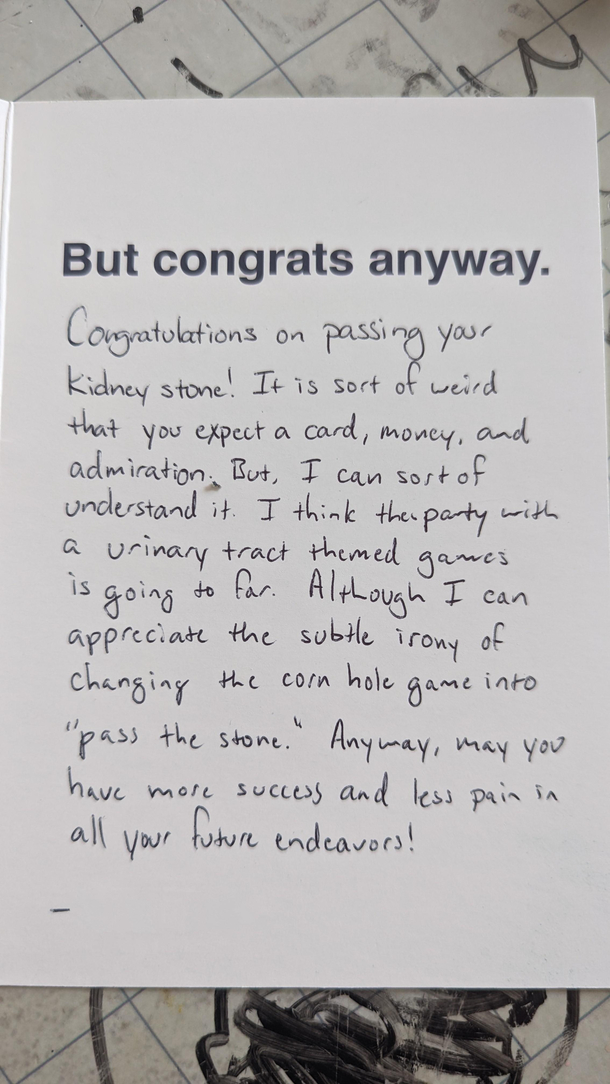 But congrats anyway.
Congratulations on passing your
kidney stone! It is sort of weird
that you expect a card, money, and
admiration. But, I can sort of
understand it. I think the party with
a urinary tract themed games
is going to far. Although I can
appreciate the subtle irony of
changing the corn hole game into
"pass the stone." Anyway, may you
have more success and less pain in
all your future endeavors!
–